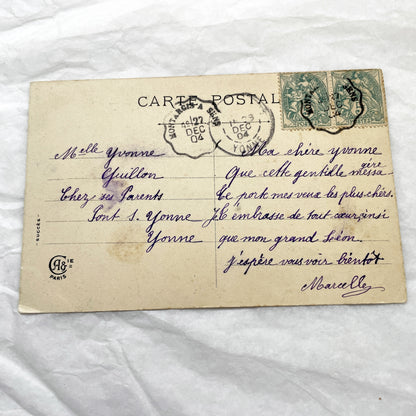 CARTE POSTALE
MONTARGIS A SENS
27
DEC
04
29
DEC
04
YONNE
Melle Yvonne
Guillon
Chez ses Parents
Pont s. Yonne
Yonne
Ma chère Yvonne
Que cette gentille messagère
te porte mes veux les plus chers.
Je t'embrasse de tout cœur ainsi
que mon grand Léon.
j'espère vous voir bientôt
Marcelle
SUCCES
A&
CIE
PARIS